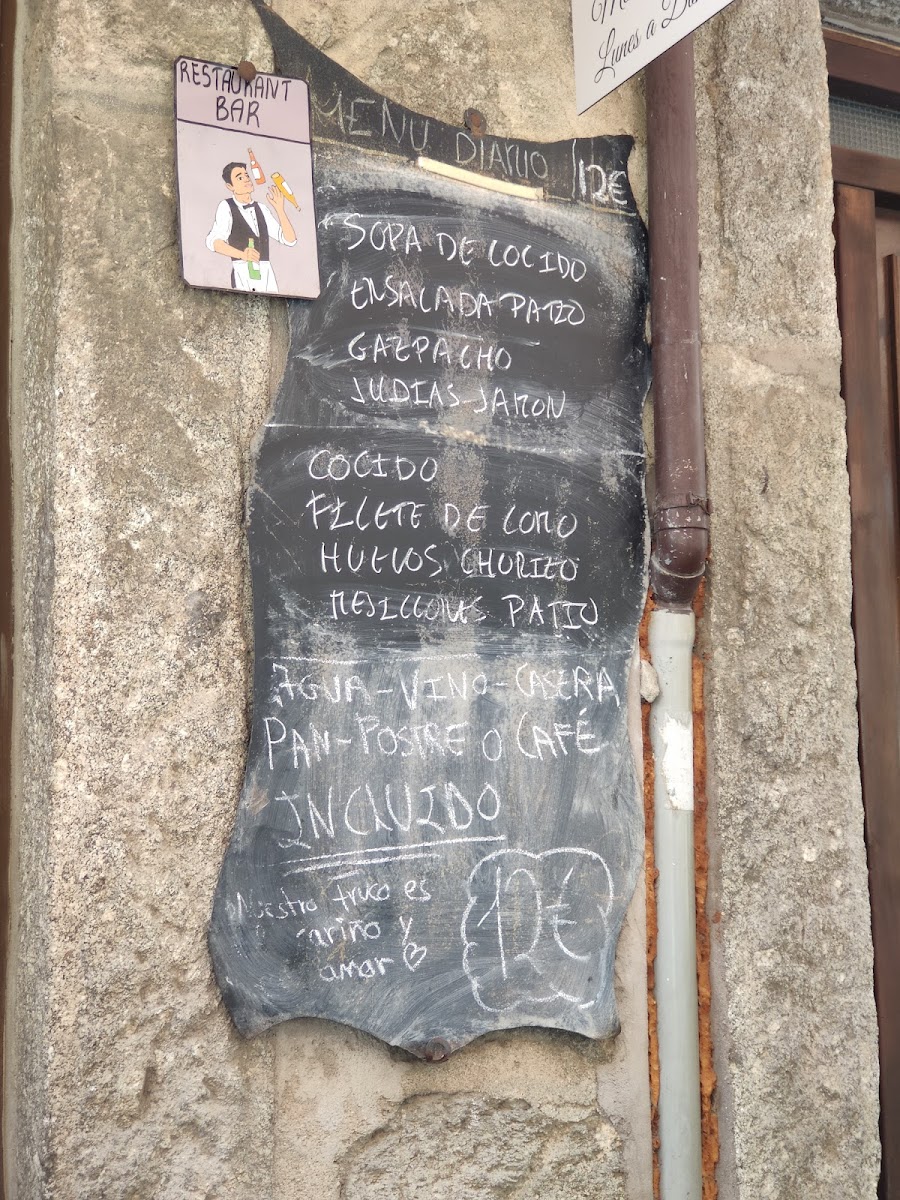 Lunes a
RESTAURANT
BAR
MENU DIARIO 12€
SOPA DE COCIDO
ENSALADA PATIO
GAZPACHO
JUDIAS-JAMON
COCIDO
FILETE DE LOMO
HUEVOS CHORIZO
MEJILLONES PATIO
AGUA-VINO-CASERA
PAN-POSTRE O CAFÉ
INCLUIDO
Nuestro truco es
cariño y
amor
12€